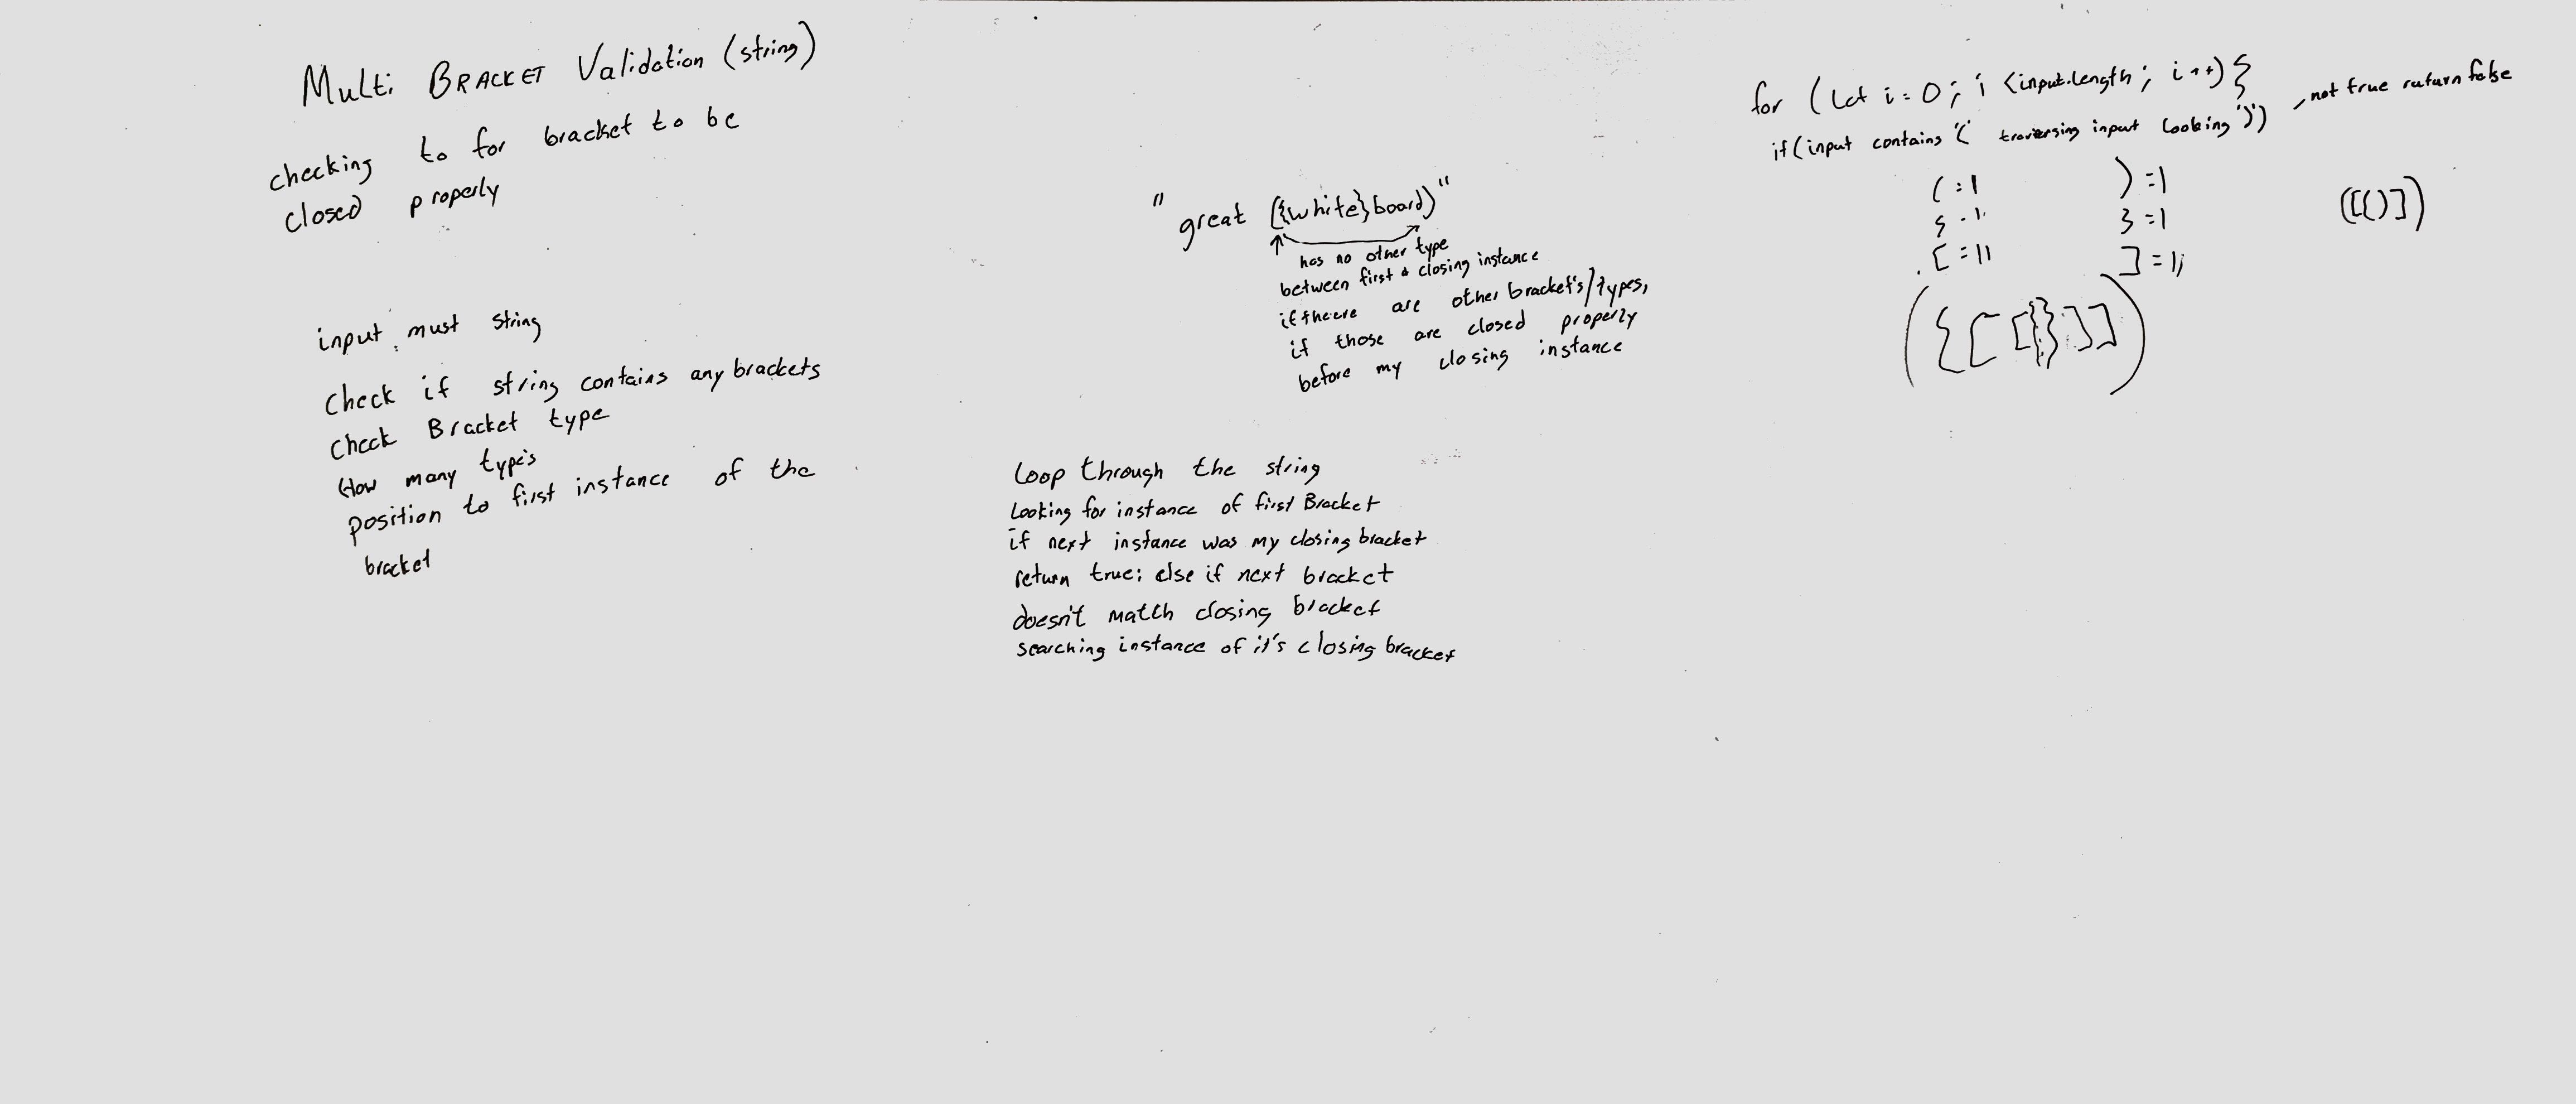 Multi BRACKET Validation (string)
checking to for bracket to be
closed properly
input must string
Check if string contains any brackets
Check Bracket type
How many type's
position to first instance of the
bracket
" great ({white}board)"
has no other type
between first & closing instance
if theere are other bracket's/types,
if those are closed properly
before my closing instance
Loop through the string
Looking for instance of first Bracket
if next instance was my closing bracket
return true; else if next bracket
doesn't match closing bracket
searching instance of it's closing bracket
for (Let i = 0; i < input.length; i++) {
not true return false
if (input contains '(' traversing input looking ')')
( = 1 ) = 1
{ = 1 } = 1
[ = 11 ] = 11
([()])